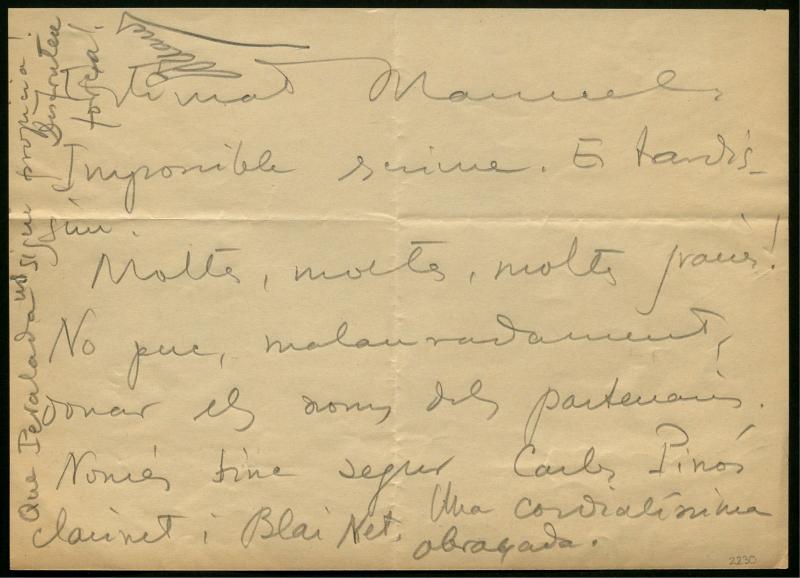 Estimat Manuel:
Impossible reunir-me. És tardís-
sim.
Moltes, moltes, moltes gràcies!
No puc, malauradament,
donar els noms dels partenaires.
Només tinc segur Carles Pinós
clarinet i Blai Net. Una cordialíssima
abraçada.
Que Peralada us sigui propícia!
Disfruteu
força!
2230